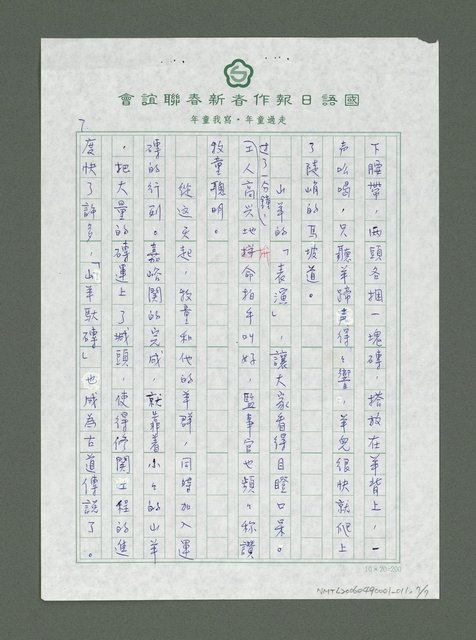 國語日報作者新春聯誼會
走過童年‧寫我童年
7
下腰帶，兩頭各捆一塊磚，搭放在羊背上，一
聲吆喝，只聽羊蹄聲得々響，羊兒很快就爬上
了陡峭的馬坡道。
山羊的「表演」，讓大家看得目瞪口呆。
過了一分鐘，
工人高興地拼命拍手叫好，監事官也頻々稱讚
拚
牧童聰明。
從這天起，牧童和他的羊群，同時加入運
磚的行列。嘉峪關的完成，就靠著小々的山羊
，把大量的磚運上了城頭，使得修關工程的進
度快了許多，「山羊馱磚」也成為古道傳說了。
10×20=200
NMTL20060490001_011. 7/7